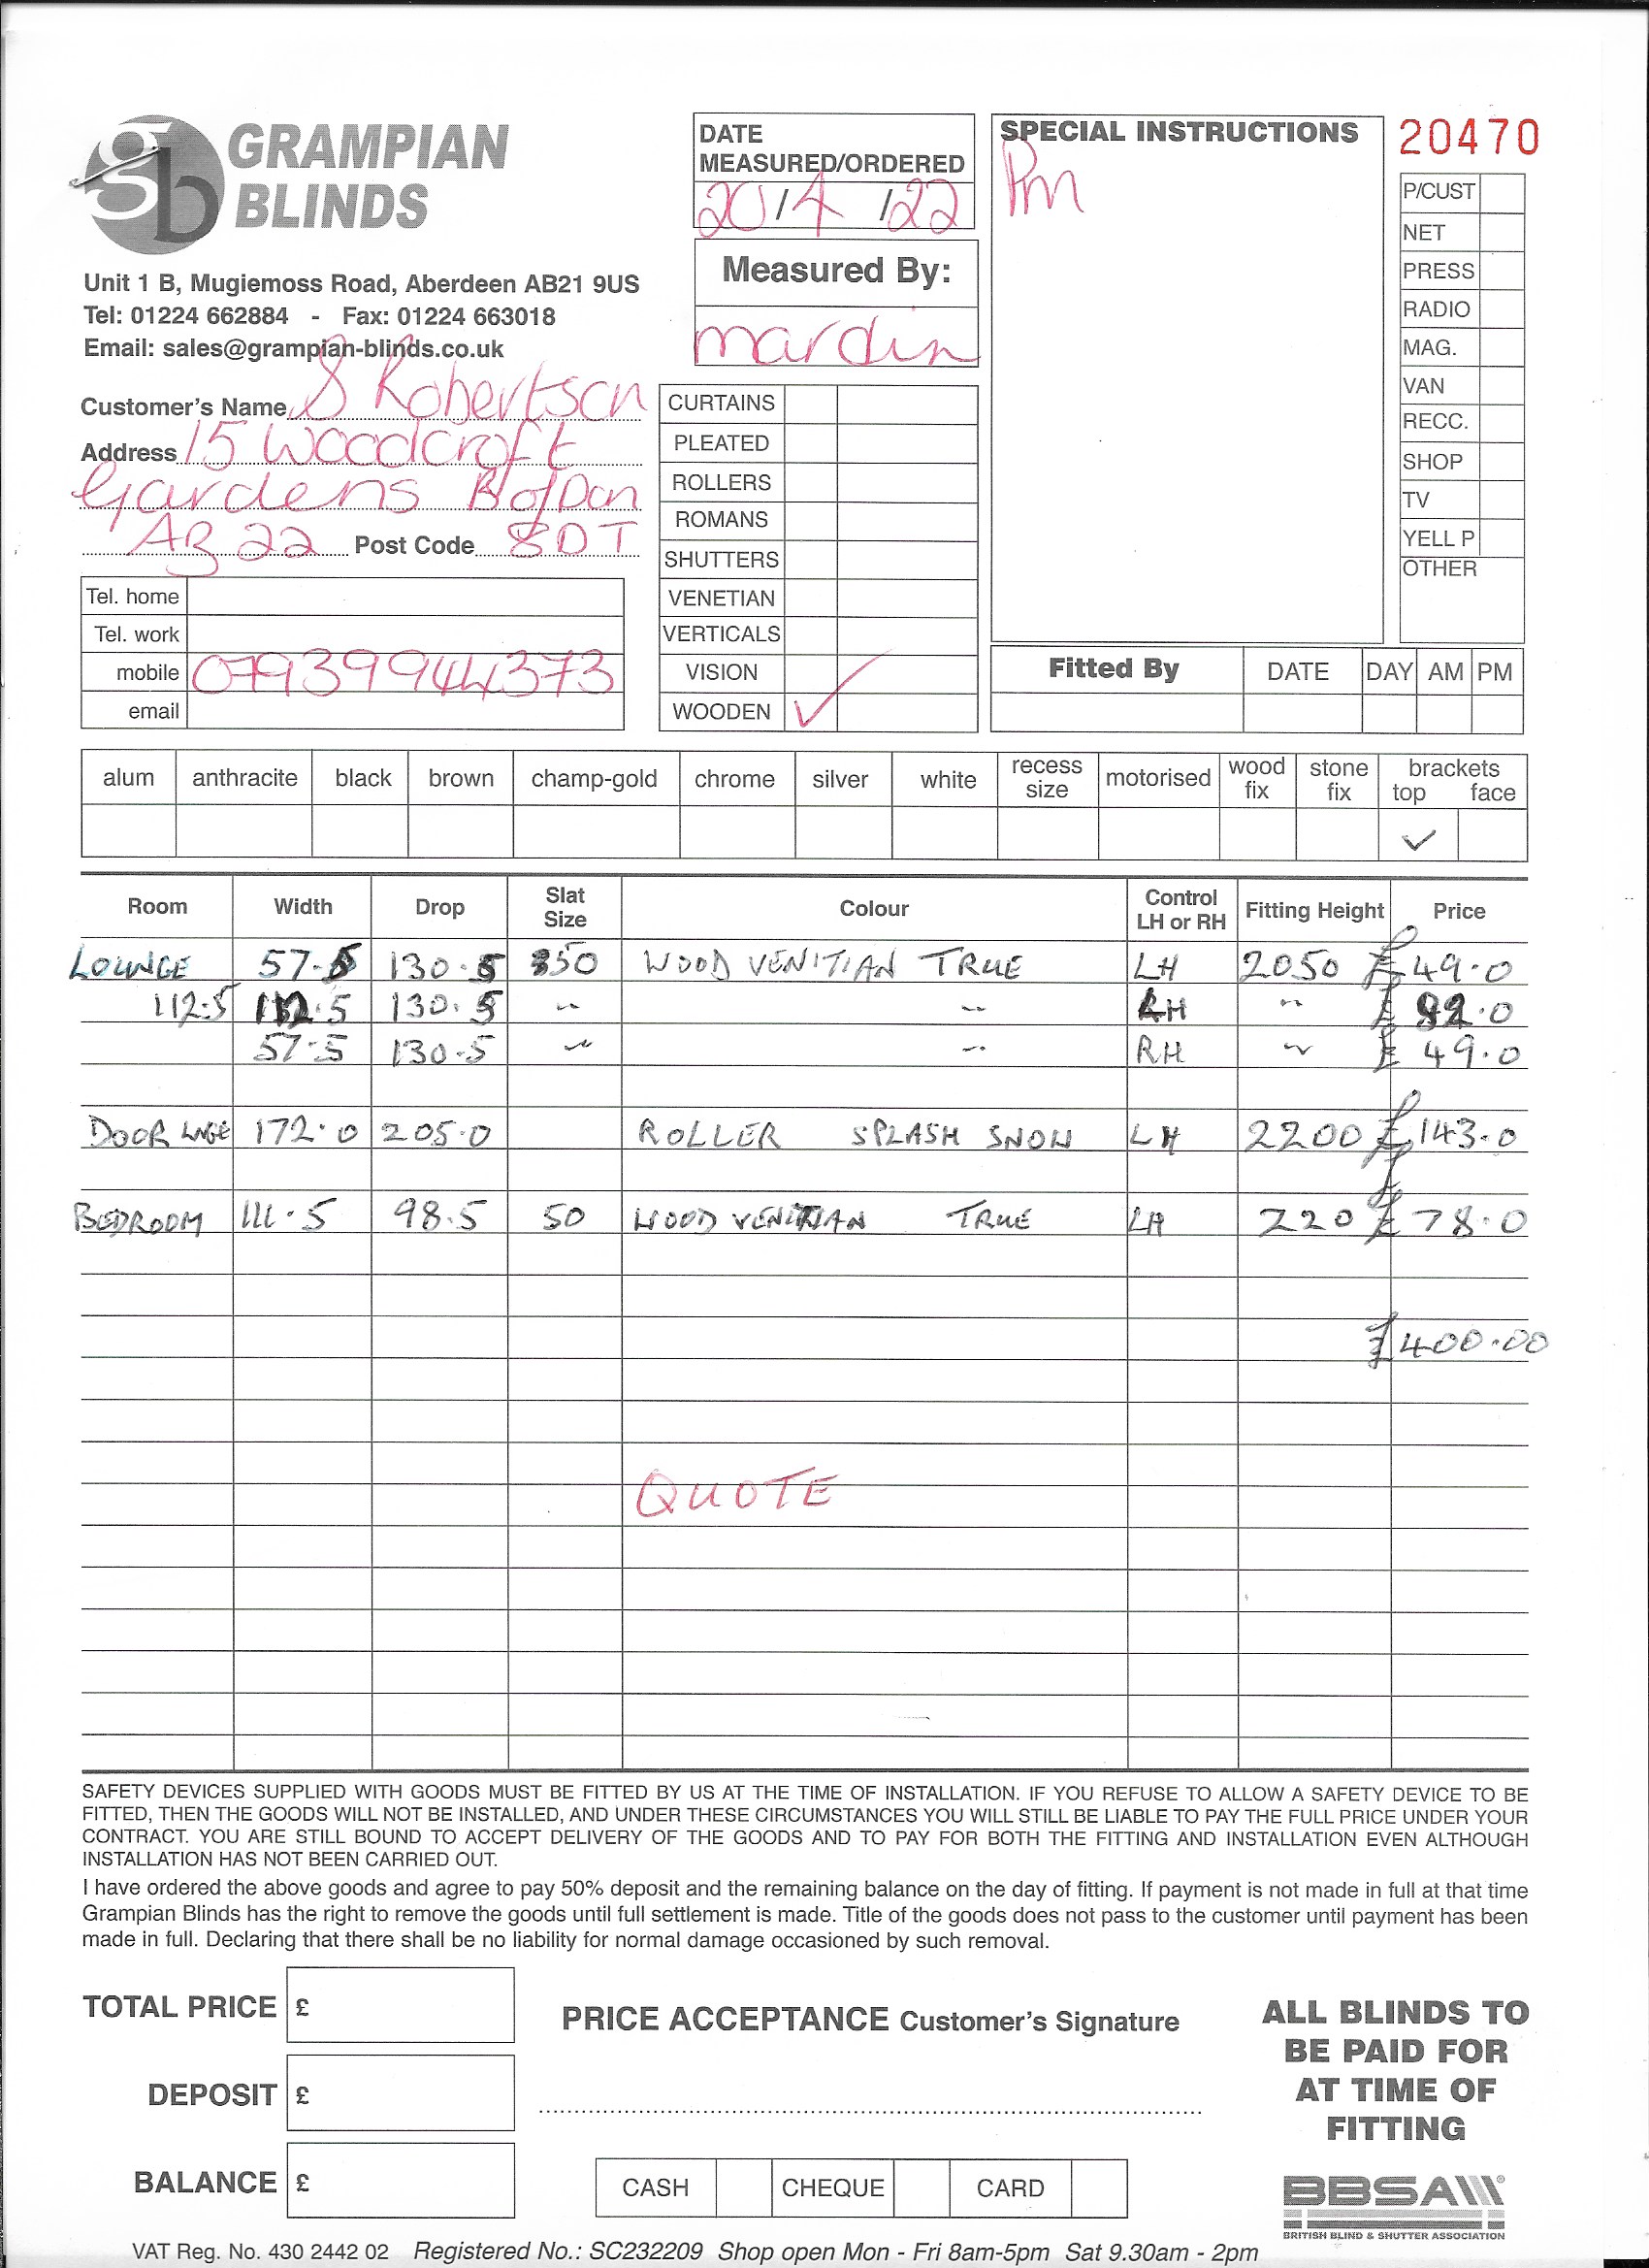 GRAMPIAN BLINDS
DATE MEASURED/ORDERED
20/4/22
SPECIAL INSTRUCTIONS
Pm
20470
Unit 1 B, Mugiemoss Road, Aberdeen AB21 9US
Tel: 01224 662884 - Fax: 01224 663018
Email: sales@grampian-blinds.co.uk
Measured By:
Customer's Name S Robertson
Address 15 Woodcroft
Gardens B of Don
AB 22 Post Code 8DT
Tel. home
Tel. work
mobile 07939944373
email
CURTAINS
PLEATED
ROLLERS
ROMANS
SHUTTERS
VENETIAN
VERTICALS
VISION
WOODEN ✓
P/CUST
NET
PRESS
RADIO
MAG.
VAN
RECC.
SHOP
TV
YELL P
OTHER
Fitted By DATE DAY AM PM
alum anthracite black brown champ-gold chrome silver white recess size motorised wood fix stone fix brackets top face
✓
Room Width Drop Slat Size Colour Control LH or RH Fitting Height Price
LOUNGE 57.5 130.5 50 WOOD VENITIAN TRUE LH 2050 £49.0
112.5 112.5 130.5 " " RH " £ 0
57.5 130.5 " " RH " £ 49.0
DOOR LNGE 172.0 205.0 ROLLER SPLASH SNOW LH 2200 £143.0
BEDROOM 111.5 98.5 50 WOOD VENITIAN TRUE LH 220 £78.0
£400.00
QUOTE
SAFETY DEVICES SUPPLIED WITH GOODS MUST BE FITTED BY US AT THE TIME OF INSTALLATION. IF YOU REFUSE TO ALLOW A SAFETY DEVICE TO BE
FITTED, THEN THE GOODS WILL NOT BE INSTALLED, AND UNDER THESE CIRCUMSTANCES YOU WILL STILL BE LIABLE TO PAY THE FULL PRICE UNDER YOUR
CONTRACT. YOU ARE STILL BOUND TO ACCEPT DELIVERY OF THE GOODS AND TO PAY FOR BOTH THE FITTING AND INSTALLATION EVEN ALTHOUGH
INSTALLATION HAS NOT BEEN CARRIED OUT.
I have ordered the above goods and agree to pay 50% deposit and the remaining balance on the day of fitting. If payment is not made in full at that time
Grampian Blinds has the right to remove the goods until full settlement is made. Title of the goods does not pass to the customer until payment has been
made in full. Declaring that there shall be no liability for normal damage occasioned by such removal.
TOTAL PRICE £
DEPOSIT £
BALANCE £
PRICE ACCEPTANCE Customer's Signature
CASH CHEQUE CARD
ALL BLINDS TO
BE PAID FOR
AT TIME OF
FITTING
BBSA
BRITISH BLIND & SHUTTER ASSOCIATION
VAT Reg. No. 430 2442 02 Registered No.: SC232209 Shop open Mon - Fri 8am-5pm Sat 9.30am - 2pm